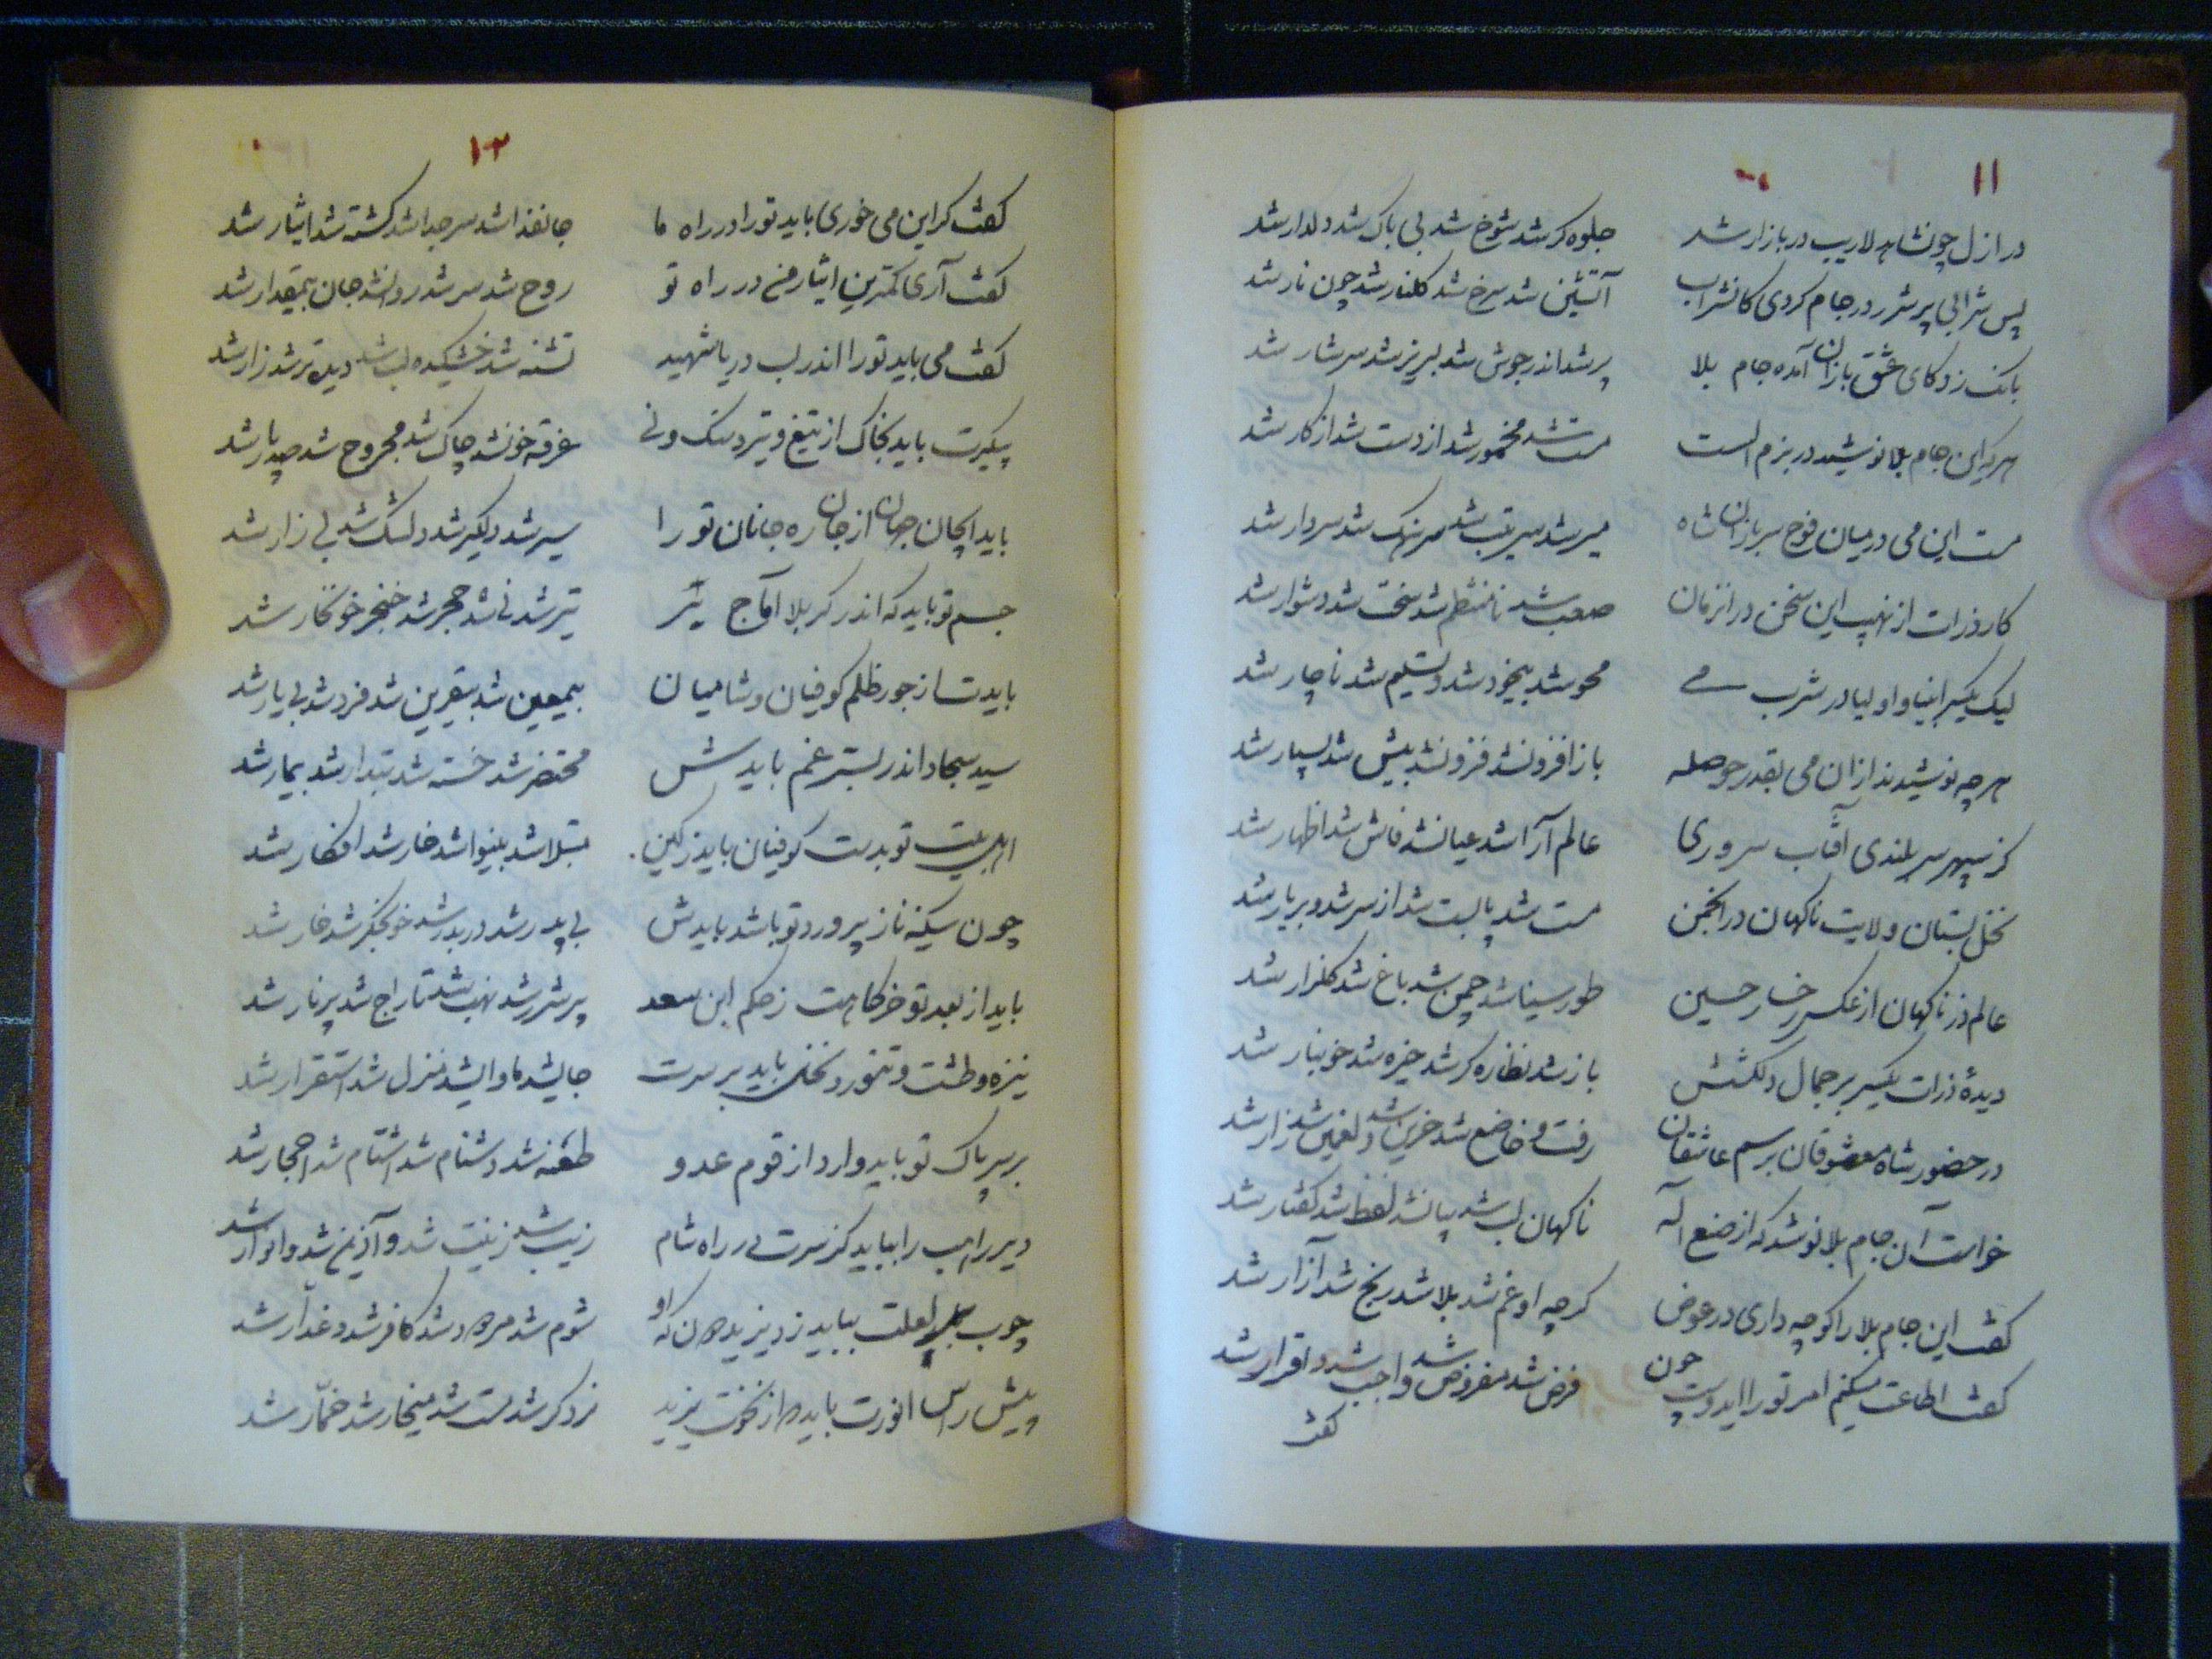 ۱۱
در ازل چون شاهد لاریب در بازار شد جلوه کر شد شوخ شد بی باک شد دلدار شد
پس شرابی پر شرر در جام کردی کانشراب آتشین شد سرخ شد کلنار شد چون نار شد
بانک زد کای عشق بازان آمده جام بلا پر شد اندر جوش شد لبریز شد سرشار شد
هر که این جام بلا نوشید در بزم الست مست شد مخمور شد از دست شد از کار شد
مست این می در میان فوج سربازان شاه میر شد سرتیب شد سرهنک شد سردار شد
کار ذرات از نهیب این سخن در انزمان صعب شد نامنتظم شد سخت شد دشوار شد
لیک یکسر انبیا و اولیا در شرب می محو شد بیخود شد و تسلیم شد ناچار شد
هر چه نوشیدند از ان می بقدر حوصله باز افزونشد فزونشد بیش شد بسیار شد
کز سپهر سر بلندی آفتاب سروری عالم آرا شد عیانشد فاش شد اظهار شد
نخل بستان ولایت ناکهان در انجمن مست شد پا بست شد از سر شد و بر یار شد
عالم ذر ناکهان از عکس رخسار حسین طور سینا شد چمن شد باغ شد کلزار شد
دیدهٔ ذرات یکسر بر جمال دلکشش باز شد نظاره کر شد خیره شد خونبار شد
در حضور شاه معشوقان برسم عاشقان رفت و خاضع شد حزین شد و لغمین شد زار شد
خواست آن جام بلا نوشد که از صنع اله ناکهان لب شد بیانشد لفظ شد کفتار شد
کفت این جام بلا را کو چه داری در عوض کر چه او غم شد بلا شد رنج شد آزار شد
کفت اطاعت میکنم امر تو را ایدوست چون فرض شد مفروض شد واجب شد و اقرار شد
کفت
۱۲
کفت کر این می خوری باید تو را در راه ما جانفدا شد سر جدا شد کشته شد ایثار شد
کفت آری کمترین ایثار من در راه تو روح شد سر شد روانشد جان بیمقدار شد
کفت می باید تو را اندر لب دریا شهید تشنه شد خشکیده لب شد دیده تر شد زار شد
پیکرت باید بخاک از تیغ و تیر و سنک و نی غرقه خونشد چاک شد مجروح شد صد پار شد
باید ایجان جهان از جان ره جانان تو را سیر شد دلکیر شد دلتنک شد بی زار شد
جسم تو باید که اندر کربلا آماج تیر تیر شد نی شد حجر شد خنجر خونخار شد
بایدت از جور ظلم کوفیان و شامیان بیمعین شد بیقرین شد فرد شد بی یار شد
سید سجاد اندر بستر غم بایدش محتضر شد خسته شد تبدار شد بیمار شد
اهلبیت تو بدست کوفیان باید زکین مبتلا شد بینوا شد خار شد افکار شد
چون سکینه ناز پرورد تو باشد بایدش بی پدر شد دربدر شد خونجکر شد خار شد
باید از بعد تو خرکاهت ز حکم ابن سعد پر شرر شد نهب شد تاراج شد پر نار شد
نیزه و طشت و تنور و نخل باید بر سرت جایشد ماوایشد منزل شد استقرار شد
بر سر پاک تو باید وارد از قوم عدو طعنه شد دشنام شد اشتام شد احجار شد
دیر راهب را بباید کز سرت در راه شام زیب شد زینت شد و آذین شد و انوار شد
چوب بر لعلت بباید زد یزید دون که او شوم شد مردود شد کافر شد و غدّار شد
پیش راس انورت باید از نخوت یزید نرد کر شد مست شد میخار شد خمّار شد